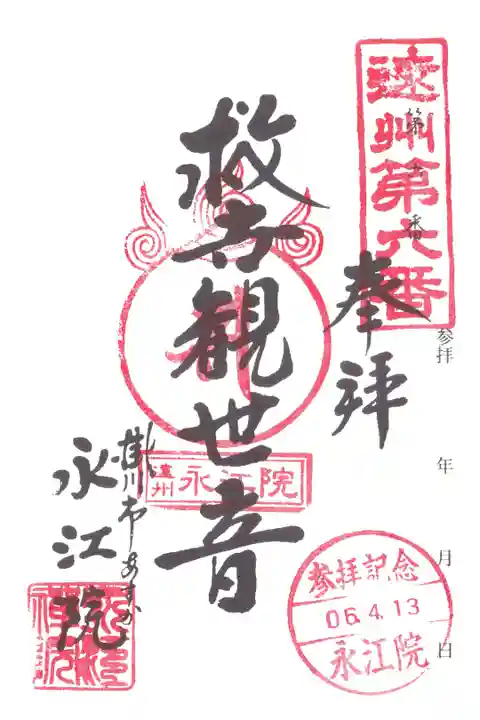 遠州第六番
第 番
参拝 年 月 日
奉拝
救世観世音
遠州 永江院
掛川市あすか
永江院
参拝記念
06.4.13
永江院